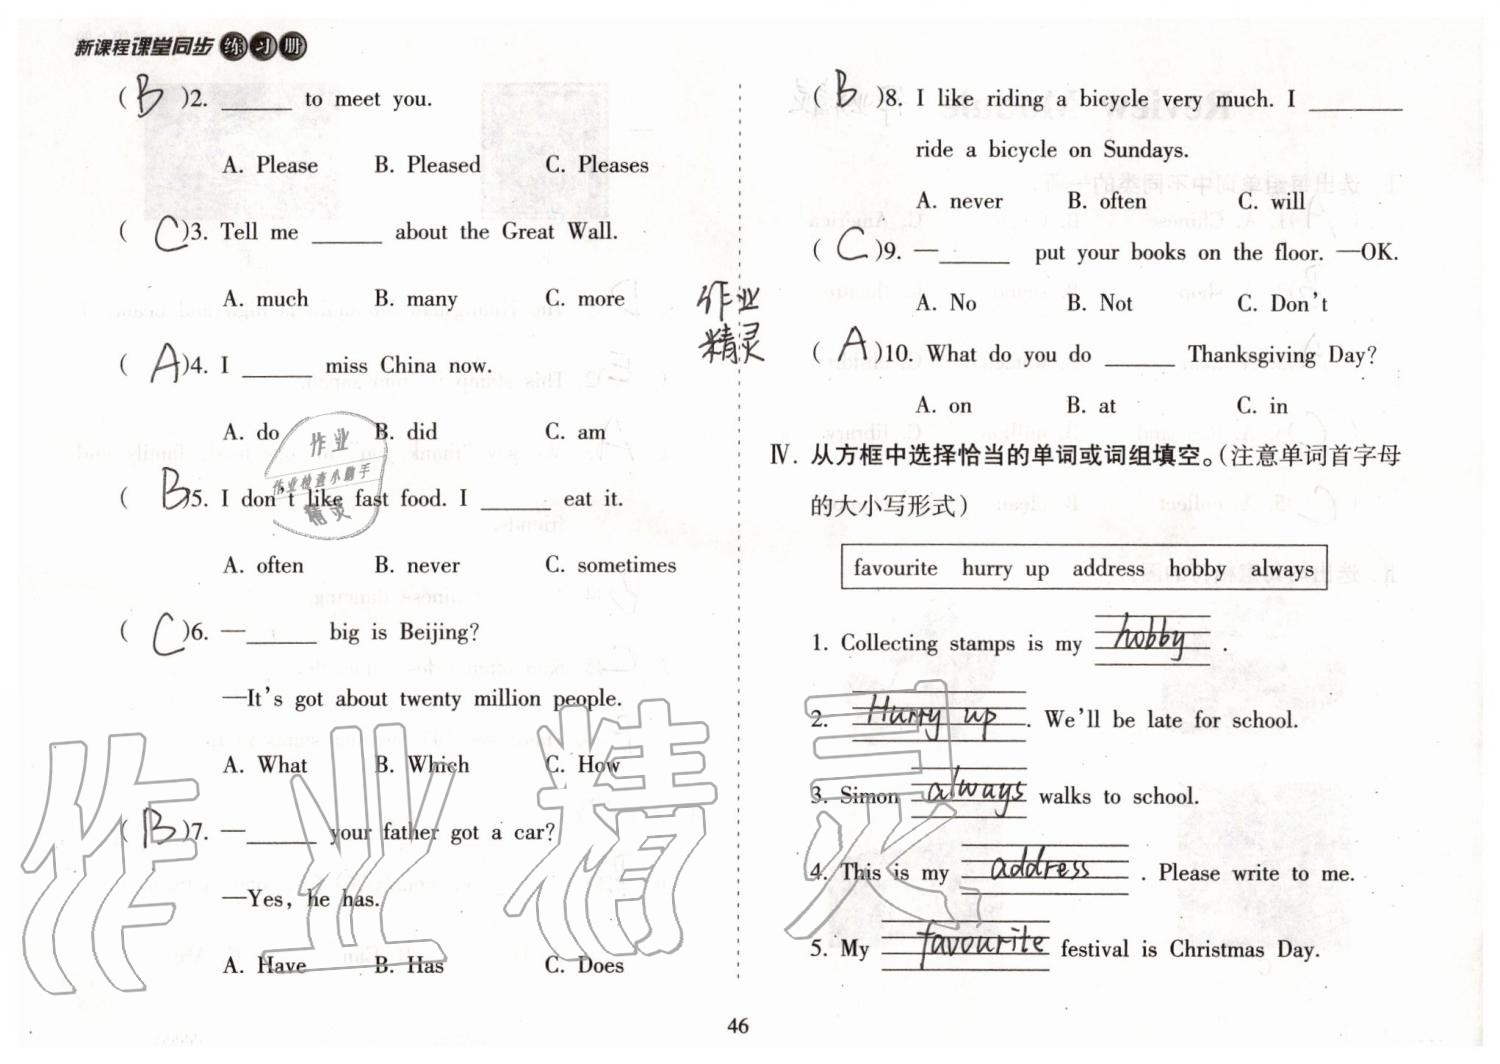 新课程课堂同步练习册
( B )2. ______ to meet you.
A. Please B. Pleased C. Pleases
( C )3. Tell me ______ about the Great Wall.
A. much B. many C. more
( A )4. I ______ miss China now.
A. do B. did C. am
( B )5. I don't like fast food. I ______ eat it.
A. often B. never C. sometimes
( C )6. —______ big is Beijing?
—It's got about twenty million people.
A. What B. Which C. How
( B )7. —______ your father got a car?
—Yes, he has.
A. Have B. Has C. Does
作业
检查小助手
精灵
作业
精灵
作业精灵
( B )8. I like riding a bicycle very much. I ______
ride a bicycle on Sundays.
A. never B. often C. will
( C )9. —______ put your books on the floor. —OK.
A. No B. Not C. Don't
( A )10. What do you do ______ Thanksgiving Day?
A. on B. at C. in
Ⅳ. 从方框中选择恰当的单词或词组填空。(注意单词首字母
的大小写形式)
favourite hurry up address hobby always
1. Collecting stamps is my hobby .
2. Hurry up . We'll be late for school.
3. Simon always walks to school.
4. This is my address . Please write to me.
5. My favourite festival is Christmas Day.
46